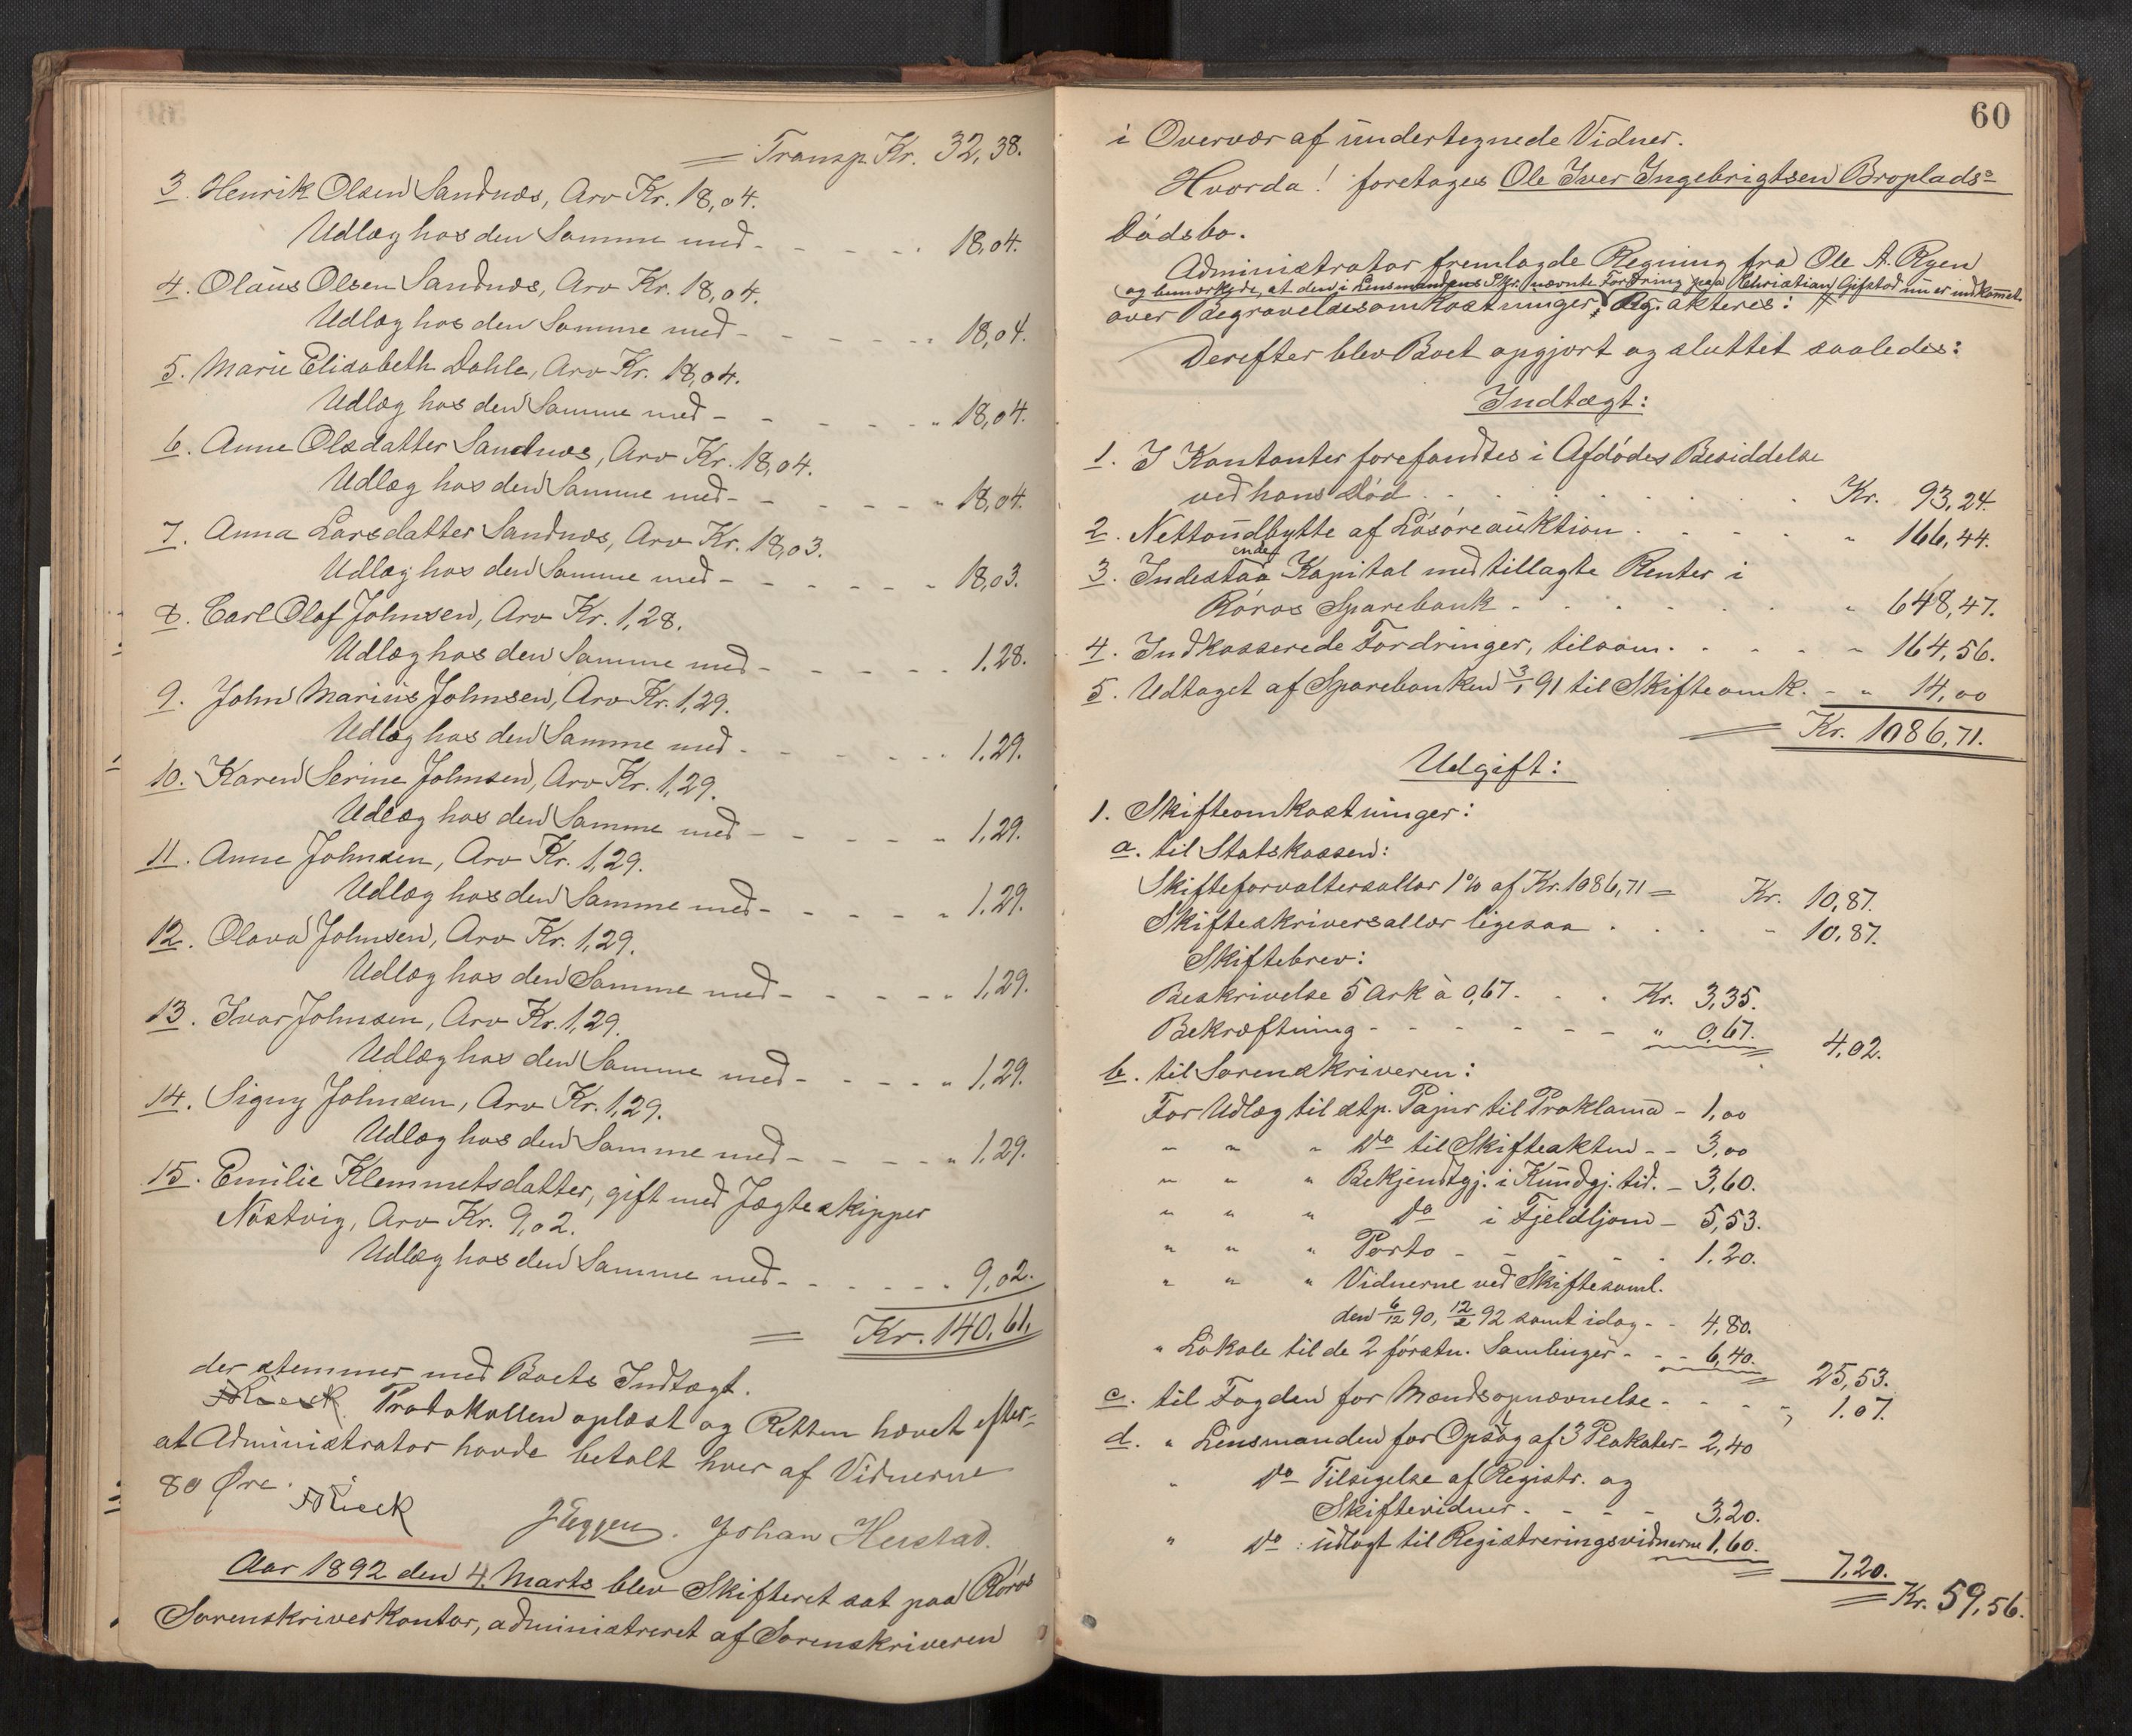 = Transp. Kr. 32,38.
3. Henrik Olsen Sandnæs, Arv Kr. 18,04.
Udlæg hos den Samme med - - - - - 18,04.
4. Olaus Olsen Sandnæs, Arv Kr. 18,04.
Udlæg hos den Samme med - - - - - " 18,04.
5. Marie Elisabeth Dahle, Arv Kr. 18,04.
Udlæg hos den Samme med - - - - - " 18,04.
6. Anne Olsdatter Sandnæs, Arv Kr. 18,04.
Udlæg hos den Samme med - - - - - " 18,04.
7. Anna Larsdatter Sandnæs, Arv Kr. 18,03.
Udlæg hos den Samme med - - - - - " 18,03.
8. Carl Olaf Johnsen, Arv Kr. 1,28.
Udlæg hos den Samme med - - - - - 1.28.
9. John Marius Johnsen, Arv Kr. 1,29.
Udlæg hos den Samme med - - - - - " 1,29.
10. Karen Serine Johnsen, Arv Kr. 1,29.
Udlæg hos den Samme med - - - - - " 1,29.
11. Anne Johnsen, Arv Kr. 1,29.
Udlæg hos den Samme med - - - - - " 1,29.
12. Olava Johnsen, Arv Kr. 1,29.
Udlæg hos den Samme med - - - - - " 1,29.
13. Ivar Johnsen, Arv Kr. 1,29.
Udlæg hos den Samme med - - - - - " 1,29.
14. Signy Johnsen, Arv Kr. 1,29.
Udlæg hos den Samme med - - - - - " 1,29.
15. Emilie Klemmetsdatter, gift med Jægteskipper
Nöstvig, Arv Kr. 9,02.
Udlæg hos den Samme med - - - - - " 9,02.
= Kr. 140,61.
der stemmer med Boets Indtægt.
Protokollen oplæst og Retten hævet efter=
at Administrator havde betalt hver af Vidnerne
80 Øre.
JEggen. Johan Herstad.
Aar 1892 den 4. Marts blev Skifteret sat paa Röros
Sorenskriverkontor, administreret af Sorenskriveren
60
i Overvær af undertegnede Vidner.
Hvorda! foretages Ole Iver Ingebrigtsen Broplads=
Dödsbo.
Administrator fremlagde Regning fra Ole A. Ryen
og bemærkede, at den i Lensmandens Skr. nævnte Fordring paa Christian Gifstad nu er indkommet.
over Begravelsesomkostninger; Reg. akteres: //
Derefter blev Boet opgjort og sluttet saaledes:
Indtægt:
1. I Kontanter forefandtes i Afdödes Besiddelse
ved hans Död . . . . . . . Kr. 93,24.
2. Nettoudbytte af Lösöreauktion . . . . " 166,44.
3. Indestaaende Kapital med tillagte Renter i
Röros Sparebank - . . . . . " 648,47.
4. Indkasserede Fordringer, tilsam. - - - - " 164,56.
5. Udtaget af Sparebanken 3/1 91 til Skifteomk. - " 14,00
= Kr. 1086,71.
Udgift:
1. Skifteomkostninger:
a. til Statskassen:
Skifteforvaltersallær 1% af Kr. 1086,71 = Kr. 10,87.
Skifteskriversallær ligesaa . . . . " 10,87.
Skiftebrev:
Beskrivelse 5 Ark à 0,67 . . . Kr. 3,35.
Bekræftning - - - - - - " 0,67. 4,02.
b. til Sorenskriveren:
For Udlæg til stp. Papir til Proklama - 1,00
" " " Do til Skifteakten - - 3,00
" " " Bekjendtgj. i Kundgj. tid. - 3,60.
" " " Do i Fjeldljom - 5,53.
" " " Porto - - - - - 1,20.
" " " Vidnerne ved Skiftesaml.
den 6/12 90, 12/2 92 samt idag - - 4,80.
" Lokale til de 2 förstn. Samlinger - - - 6,40. 25,53.
c. til Fogden for Mændsopnævnelse - - - - " 1.07.
d. " Lensmanden for Opslag af 3 Plakater - 2,40
" Do Tilsigelse af Registr. og
Skiftevidner - - - - 3,20.
" Do: udlagt til Registreringsvidnerne 1,60. 7,20.
= Kr. 59,56.